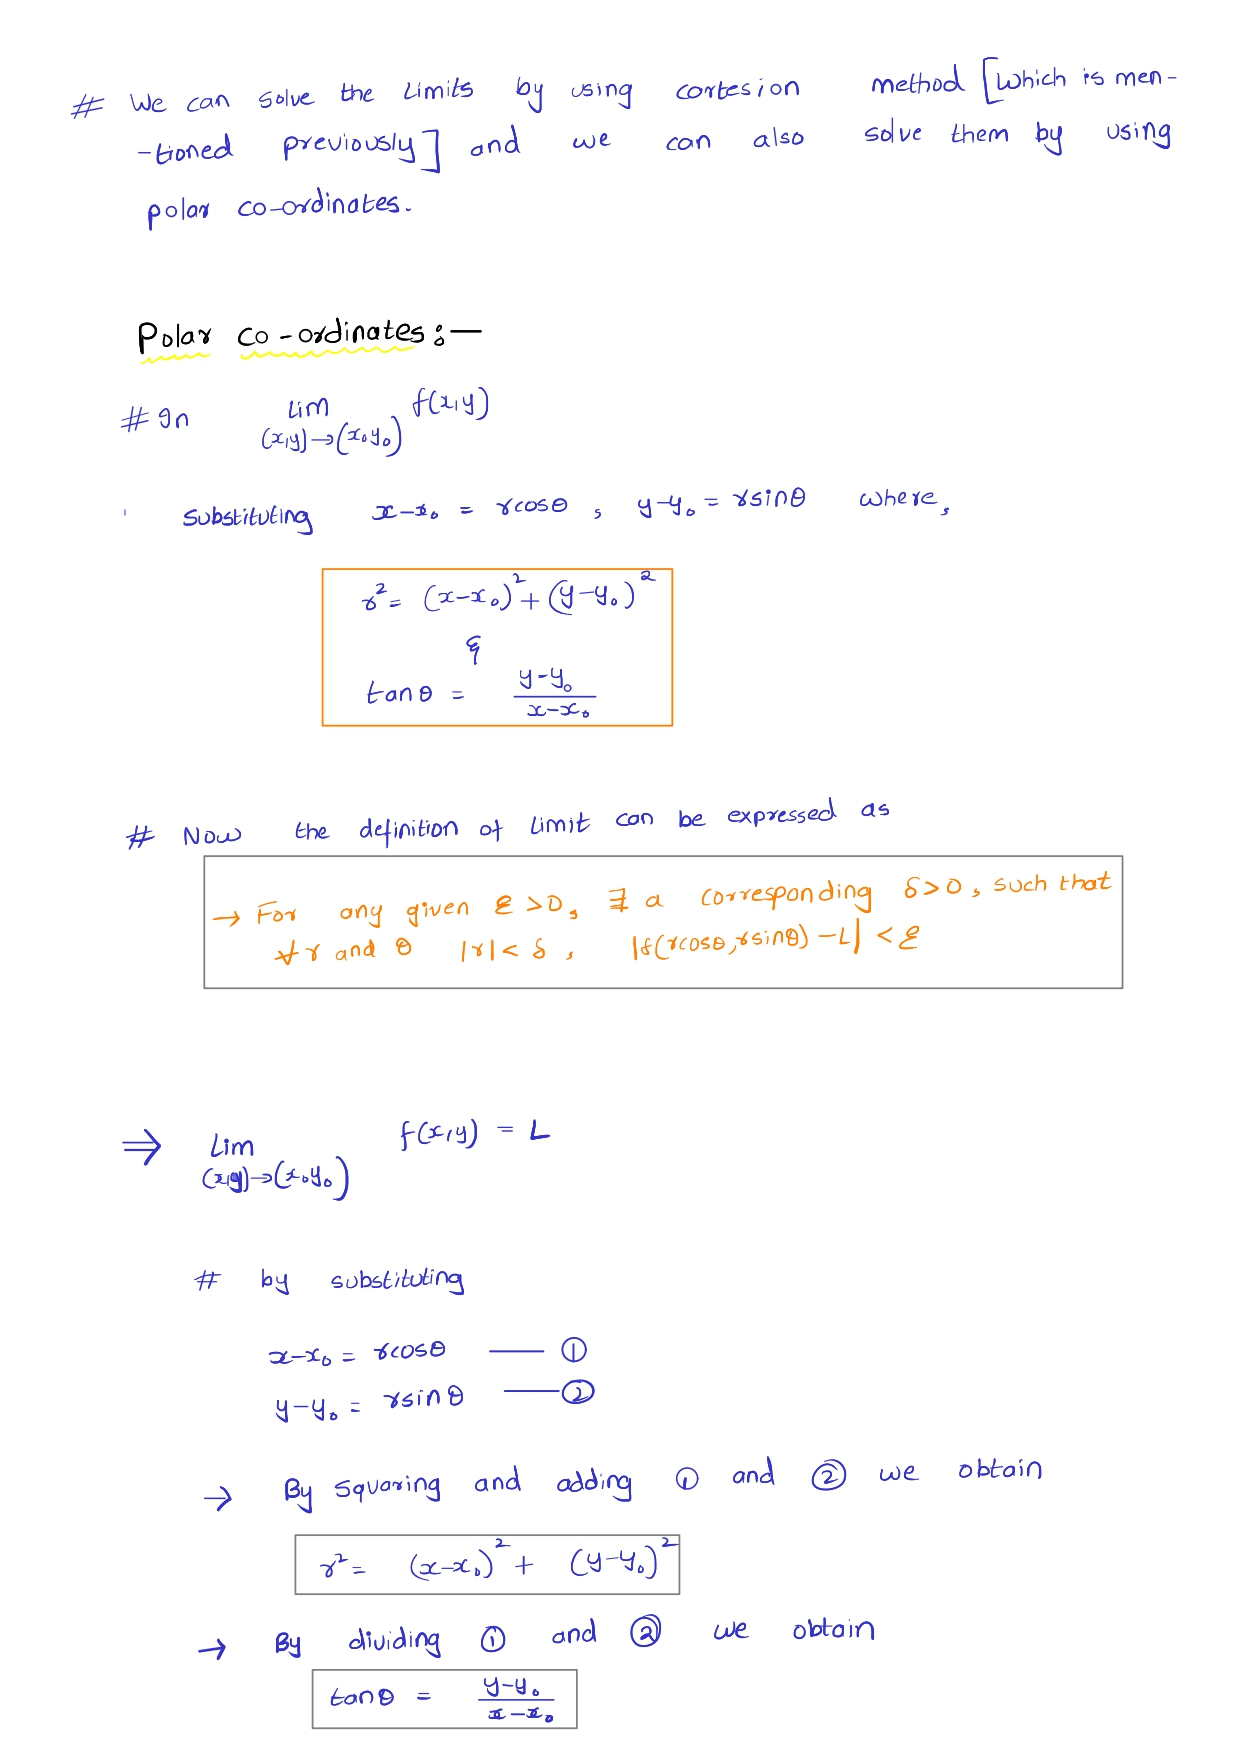 # We can solve the Limits by using cortesion method [which is men-
-tioned previously] and we can also solve them by using
polar co-ordinates.
Polar co-ordinates :—
# In Lim (x,y)→(x₀,y₀) f(x,y)
substituting x-x₀ = rcosθ , y-y₀ = rsinθ where,
r² = (x-x₀)² + (y-y₀)²
&
tanθ = (y-y₀)/(x-x₀)
# Now the definition of limit can be expressed as
→ For any given ε>0, ∃ a corresponding δ>0, such that
∀ r and θ |r|<δ, |f(rcosθ, rsinθ) - L| < ε
⇒ Lim (x,y)→(x₀,y₀) f(x,y) = L
# by substituting
x-x₀ = rcosθ —— ①
y-y₀ = rsinθ —— ②
→ By squaring and adding ① and ② we obtain
r² = (x-x₀)² + (y-y₀)²
→ By dividing ① and ② we obtain
tanθ = (y-y₀)/(x-x₀)